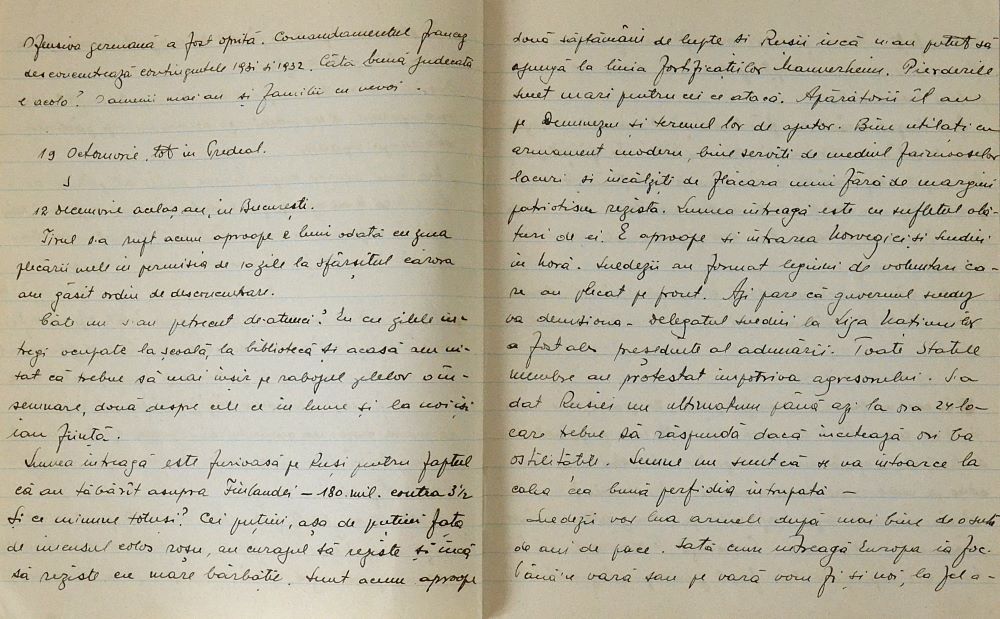 Ofensiva germană a fost oprită. Comandamentul francez
desconcentrează contingentele 1931 și 1932. Câtă bună judecată
e acolo? Oamenii mai au și familii cu nevoi.
19 Octomvrie, tot in Predeal.
12 Decemvrie acelaș an, in București.
Firul s-a rupt acum aproape 2 luni odată cu ziua
plecării mele in permisia de 10 zile la sfârșitul cărora
am găsit ordin de desconcentrare.
Câte nu s-au petrecut de-atunci? Eu cu zilele în-
tregi ocupate la școală, la bibliotecă și acasă am ui-
tat că trebue să mai înșir pe rabojul zilelor o în-
semnare, două despre cele ce în lume și la noi își
iau ființă.
Lumea întreagă este furioasă pe Ruși pentru faptul
că au tăbărît asupra Finlandei – 180 mil. contra 3 1/2
Și ce minune totuși? Cei puțini, așa de puțini față
de imensul colos roșu, au curajul să reziste și încă
să reziste cu mare bărbăție. Sunt acum aproape
două săptămâni de lupte și Rușii încă n-au putut să
ajungă la linia fortificațiilor Mannerheim. Pierderile
sunt mari pentru cei ce atacă. Apărătorii îl au
pe Dumnezeu și terenul lor de ajutor. Bine utilați cu
armament modern, bine serviți de mediul faimoaselor
lacuri și încălziți de flăcara unui fără de margini
patriotism rezistă. Lumea întreagă este cu sufletul ală-
turi de ei. E aproape și intrarea Norvegiei și Suediei
în horă. Suedezii au format legiuni de voluntari ca-
re au plecat pe front. Azi pare că guvernul suedez
va demisiona. Delegatul suediei la Liga Națiunilor
a fost ales președinte al adunării. Toate statele
membre au protestat împotriva agresorului. S-a
dat Rusiei un ultimatum până azi la ora 24 la-
care trebue să răspundă dacă încetează ori ba
ostilitățile. Semne nu sunt că se va întoarce la
calea cea bună perfidia intrupată –
Suedezii vor lua armele după mai bine de o sută
de ani de pace. Iată cum întreagă Europa ia foc.
Până'n vară sau pe vară vom fi și noi, la fel a-